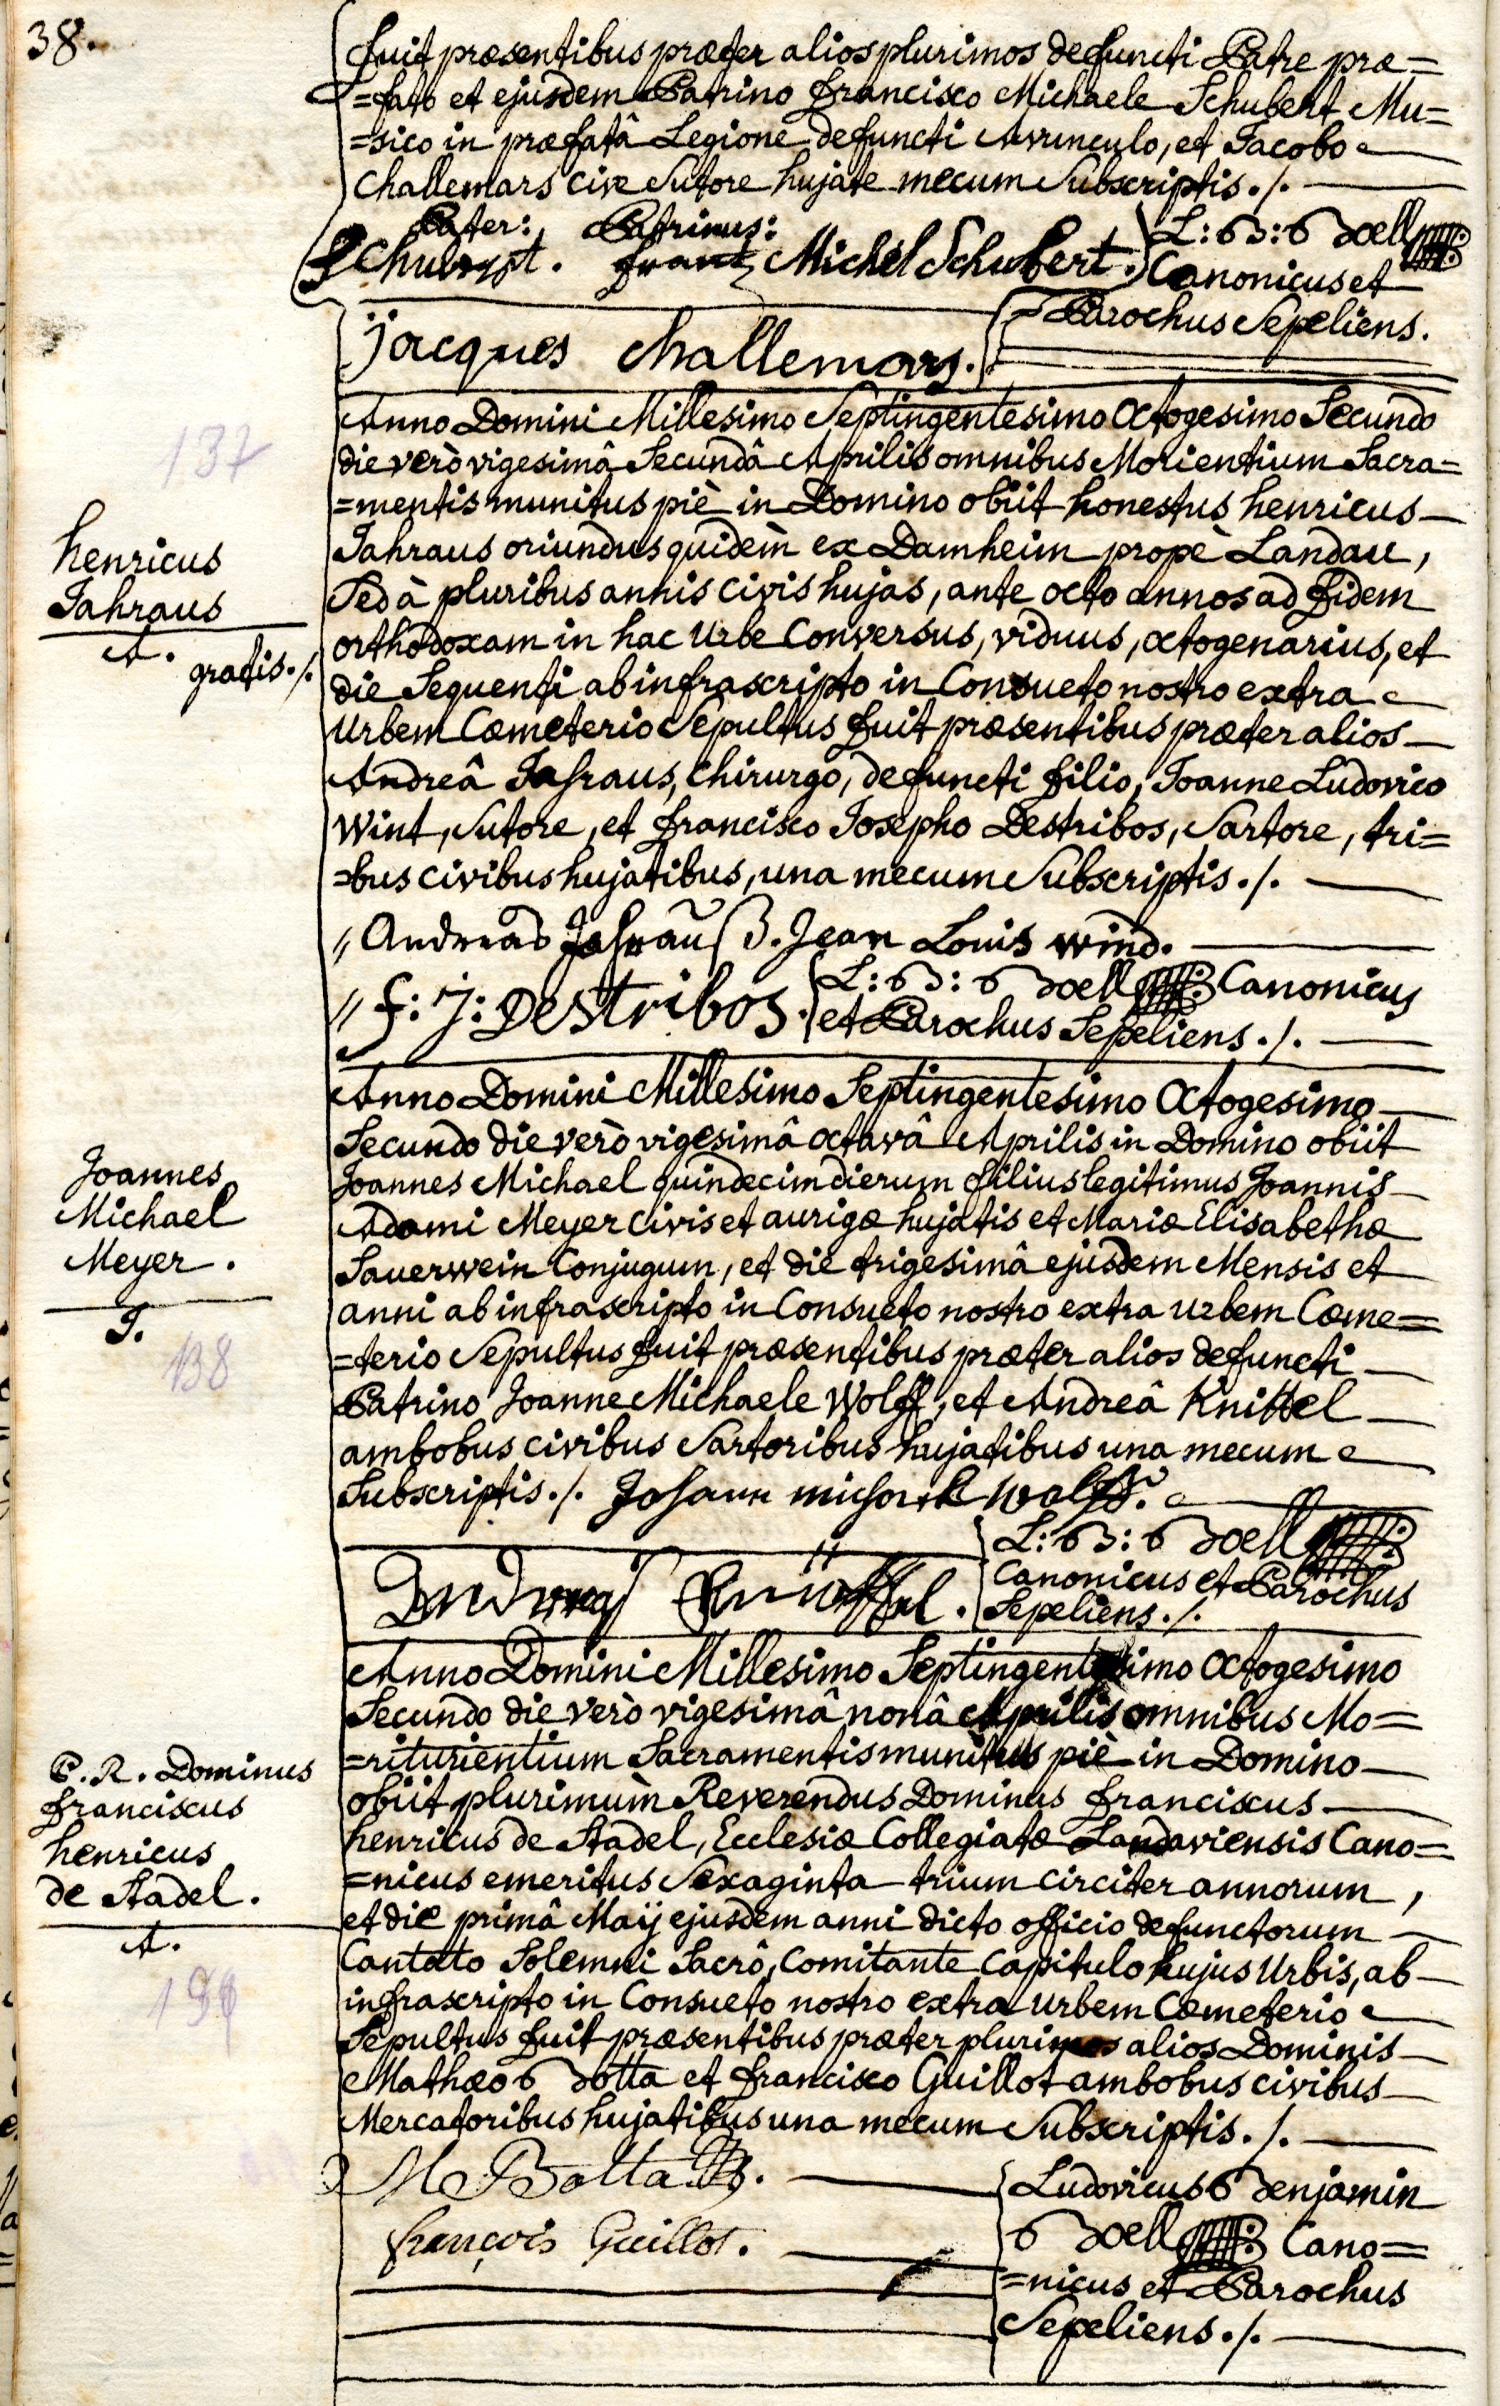 38.
fuit præsentibus præter alios plurimos defuncti Patre præ=
=fato et ejusdem Patrino francisco Michaele Schubert Mu=
=sico in præfatâ Legione defuncti Avunculo, et Jacobo
challemars cive Sutore hujate mecum Subscriptis ./.
Pater: Patrinus:
Schubert. frantz Michel Schubert.
L: B: Boell
Canonicus et
Parochus Sepeliens.
jacques challemars.
137
Anno Domini Millesimo Septingentesimo Octogesimo Secundo
die verò vigesimâ Secundâ Aprilis omnibus Morientium Sacra=
=mentis munitus piè in Domino obiit honestus henricus
Jahraus oriundus quidèm ex Damheim propè Landau,
Sed à pluribus annis civis hujas, ante octo annos ad fidem
orthodoxam in hac Urbe Conversus, viduus, octogenarius, et
die Sequenti ab infrascripto in Consueto nostro extra
Urbem Cœmeterio Sepultus fuit præsentibus præter alios
Andreâ Jahraus, chirurgo, defuncti filio, Joanne Ludovico
Wint, Sutore, et francisco Josepho Destribos, Sartore, tri=
=bus civibus hujatibus, una mecum Subscriptis ./.
henricus
Jahraus
A.
gratis ./.
// Andreas Jahrauß. Jean Louis wind.
// f: J: Destribos.
L: B: Boell Canonicus
et Parochus Sepeliens ./.
Anno Domini Millesimo Septingentesimo Octogesimo
Secundo die verò vigesimâ octavâ Aprilis in Domino obiit
Joannes Michael quindecim dierum filius legitimus Joannis
Adami Meyer civis et aurigæ hujatis et Mariæ Elisabethæ
Sauerwein Conjugum, et die trigesimâ ejusdem Mensis et
anni ab infrascripto in Consueto nostro extra urbem Cœme=
=terio Sepultus fuit præsentibus præter alios defuncti
Patrino Joanne Michaele Wolff, et Andreâ Knittel
ambobus civibus Sartoribus hujatibus una mecum
Subscriptis ./. Johann michael wolff.
Joannes
Michael
Meyer.
J.
138
L: B: Boell
Canonicus et Parochus
Sepeliens ./.
Anno Domini Millesimo Septingentesimo Octogesimo
Secundo die verò vigesimâ nonâ Aprilis omnibus Mo=
=riturientium Sacramentis munitus piè in Domino
obiit plurimùm Reverendus Dominus franciscus
henricus de Stadel, Ecclesiæ Collegiatæ Landaviensis Cano=
=nicus emeritus Sexaginta trium circiter annorum,
et die primâ Maij ejusdem anni dicto officio defunctorum
Cantato Solemni Sacrô, Comitante Capitulo hujus Urbis, ab
infrascripto in Consueto nostro extra Urbem Cœmeterio
Sepultus fuit præsentibus præter plurimos alios Dominis
Mathæo Botta et francisco Guillot ambobus civibus
Mercatoribus hujatibus una mecum Subscriptis ./.
P. R. Dominus
franciscus
henricus
de Stadel.
A.
M Botta
françois Guillot.
Ludovicus Benjamin
Boell Cano=
=nicus et Parochus
Sepeliens ./.